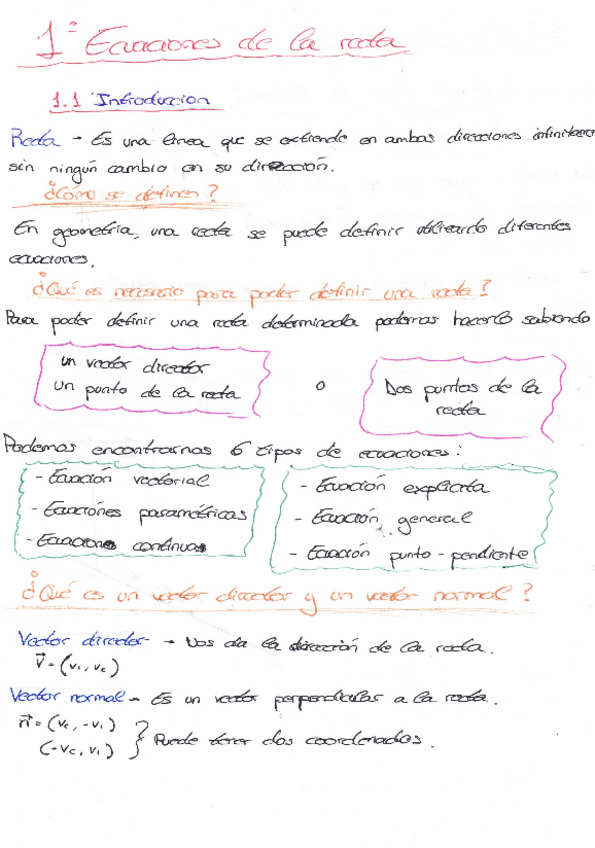 1º Ecuaciones de la recta
1.1 Introduccion
Recta - Es una linea que se extiende en ambas direcciones infinitamente
sin ningún cambio en su dirección.
¿Cómo se definen?
En geometría, una recta se puede definir utilizando diferentes
ecuaciones.
¿Qué es necesario para poder definir una recta?
Para poder definir una recta determinada podemos hacerlo sabiendo
un vector director
un punto de la recta
o
Dos puntos de la
recta
Podemos encontrarnos 6 tipos de ecuaciones:
- Ecuación vectorial
- Ecuaciónes paramétricas
- Ecuaciones continuas
- Ecuación explícita
- Ecuación general
- Ecuación punto - pendiente
¿Qué es un vector director y un vector normal?
Vector director - Nos da la dirección de la recta.
v⃗ = (v₁, v₂)
Vector normal - Es un vector perpendicular a la recta.
n⃗ = (v₂, -v₁)
(-v₂, v₁) } Puede tener dos coordenadas.